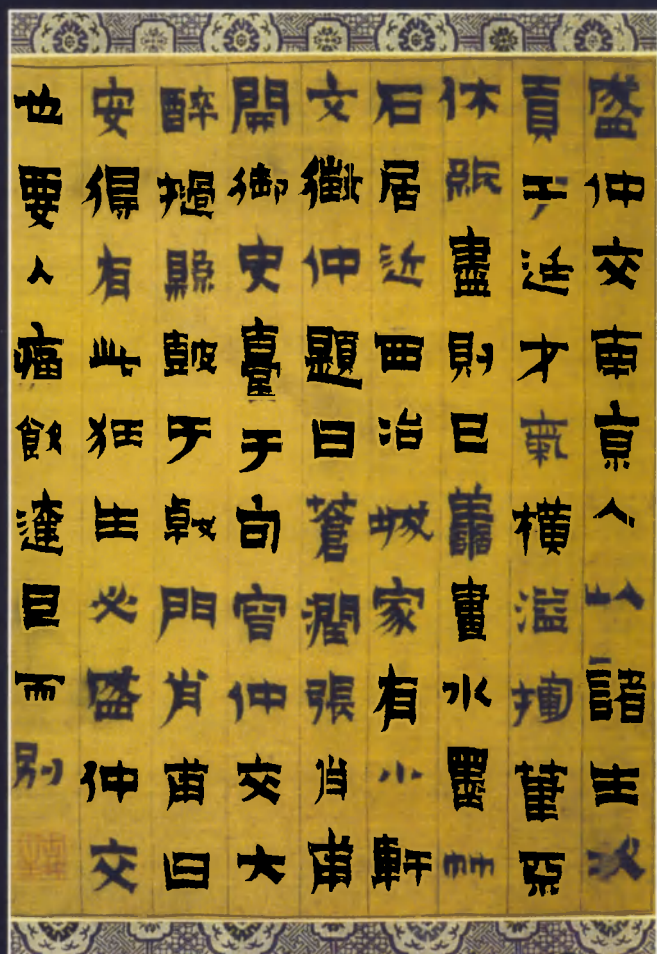 盛仲交南京人以諸生
貢于廷才氣橫溢揮筆不
休紙盡則已善畫水墨竹
石居近西治城家有小軒
文徵仲題曰蒼潤張肖甫
開御史臺于句容仲交大
醉撾縣鼓于戟門肖甫曰
安得有此狂生必盛仲交
也要入痛飲達旦而別